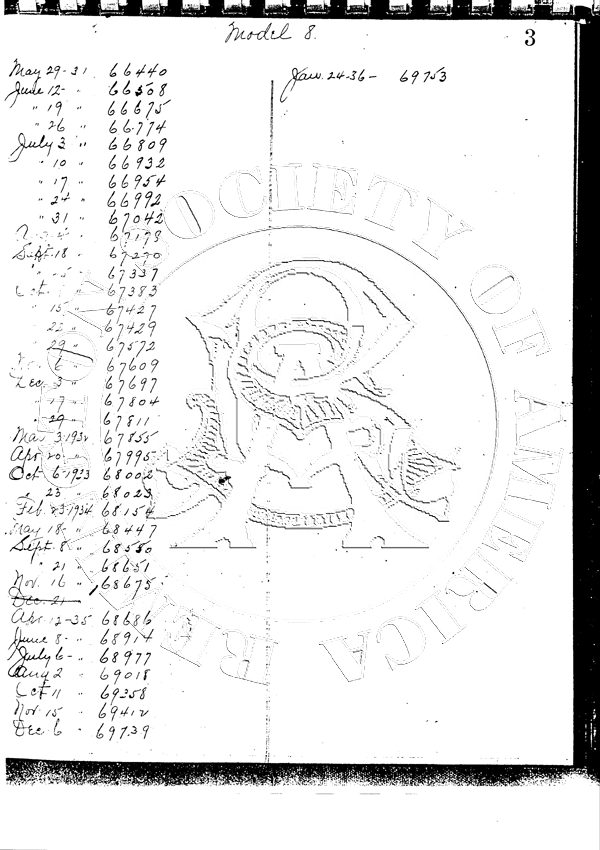 Model 8.
3
May 29-31 66440
June 12- " 66508
" 19 " 66675
" 26 " 66774
July 3 " 66809
" 10 " 66932
" 17 " 66954
" 24 " 66992
" 31 " 67042
67173
Sept. 18 " 67270
67337
Oct. 67383
" 15 " 67427
" 22 " 67429
" 29 " 67572
Nov. 6 " 67609
Dec. 3 " 67697
" 17 " 67804
" 29 " 67811
Mar. 3-1932 67855
Apr. 20 " 67995
Oct 6-1933 68002
" 23 " 68023
Feb. 23-1934 68154
May 18- " 68447
Sept. 8 " 68580
" 21 " 68651
Nov. 16 " 68675
Dec. 21
Apr. 12-35 68686
June 8- " 68914
July 6- " 68977
Aug 2 " 69018
Oct 11 " 69358
Nov. 15 " 69412
Dec. 6 " 69739
Jan. 24-36- 69753
SOCIETY OF AMERICA